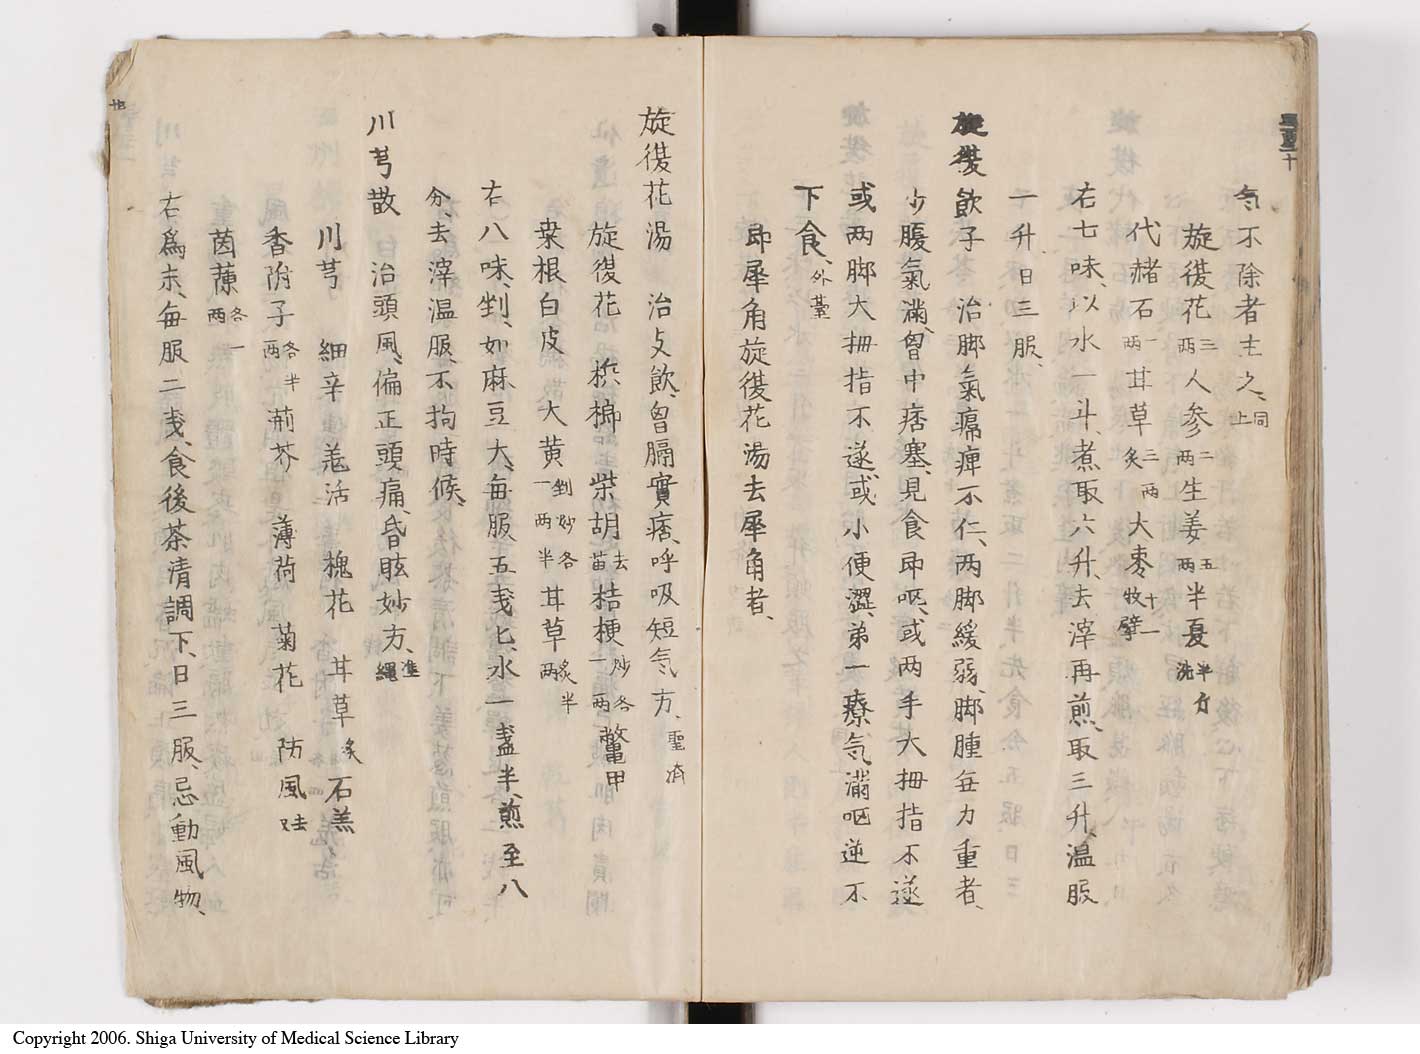 气不除者主之、同上
旋復花三两人参二两生姜五两半夏半升洗
代赭石一两甘草三两炙大枣十一牧擘
右七味、以水一斗、煮取六升、去滓再煎、取三升、温服
一升、日三服、
旋復飲子 治脚氣痛痺不仁、两脚緩弱、脚腫每力重者、
少腹氣滿、曾中痞塞、見食即呕、或两手大拇指不遂
或两脚大拇指不遂、或小便澀、弟一療气滿呕逆不
下食、外臺
即犀角旋復花湯去犀角者、
旋復花湯 治攴飲、曾膈實痞、呼吸短气方、聖济
旋復花 檳榔 柴胡去苗桔梗炒各一两鼈甲
桒根白皮 大黄剉炒各一两半甘草炙半两
右八味、剉、如麻豆大、每服五戔匕、水一盞半、煎至八
分、去滓温服、不拘時候、
川芎散 治頭風、偏正頭痛、昏眩妙方、準繩
川芎 細辛 羗活 槐花 甘草炙石羔
香附子各半两荊芥 薄荷 菊花 防風去叉
茵蔯各一两
右爲末、每服二戔、食後茶清調下、日三服、忌動風物、
Copyright 2006. Shiga University of Medical Science Library